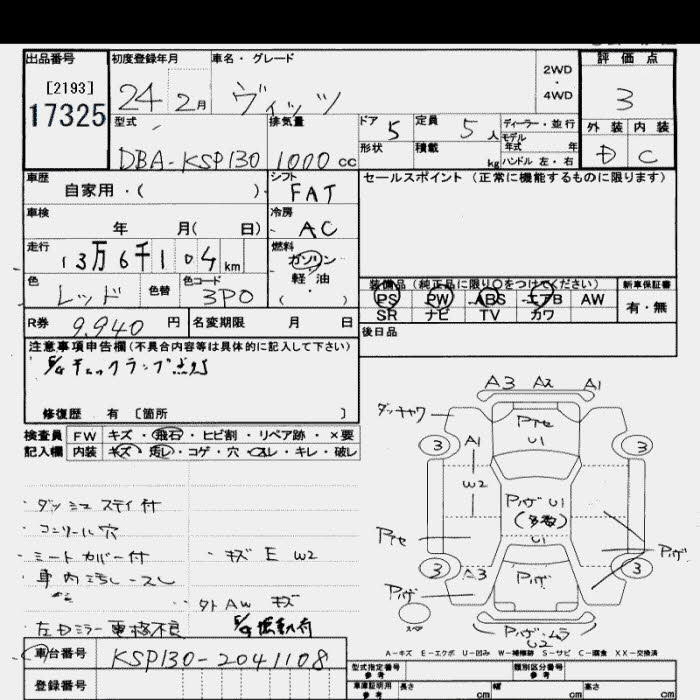 出品番号 初度登録年月 車名・グレード 評価点
[2193] 24 2月 ヴィッツ 2WD・4WD 3
17325 外装 内装
型式 排気量 ドア 5 定員 5人 ディーラー・並行 D C
DBA-KSP130 1000cc 形状 積載 kg モデル年式 年
ハンドル 左・右
車歴 シフト セールスポイント(正常に機能するものに限ります)
自家用・( ) FAT
車検 冷房
年 月( 日) AC
走行 燃料
13万6千104km ガソリン・軽油・( )
色 レッド 色替 色コード 3P0
装備品(純正品に限り○をつけてください) 新車保証書
PS PW ABS エアB AW 有・無
SR ナビ TV カワ
R券 9,940円 名変期限 月 日 後日品
注意事項申告欄(不具合内容等は具体的に記入して下さい)
修復歴 有 〔箇所 〕
検査員 FW キズ・飛石・ヒビ割・リペア跡・×要
記入欄 内装 キズ・汚レ・コゲ・穴・コスレ・キレ・破レ
A3 A2 A1
ダッキャワ
3 3
A1 U1
W2
(多数)
U1
A3
3 3
U2
・ダッシュ ステイ付
・コンソール穴
・シートカバー付 ・キズ E W2
・車内汚レ・スレ
・外AW キズ
A-キズ E-エクボ U-凹み W-補修跡 S-サビ C-腐食 XX-交換済
車台番号 KSP130-2041108
登録番号
型式指定番号 参考 類別区分番号 参考
車庫証明用 参考 長さ cm 幅 cm 高さ cm